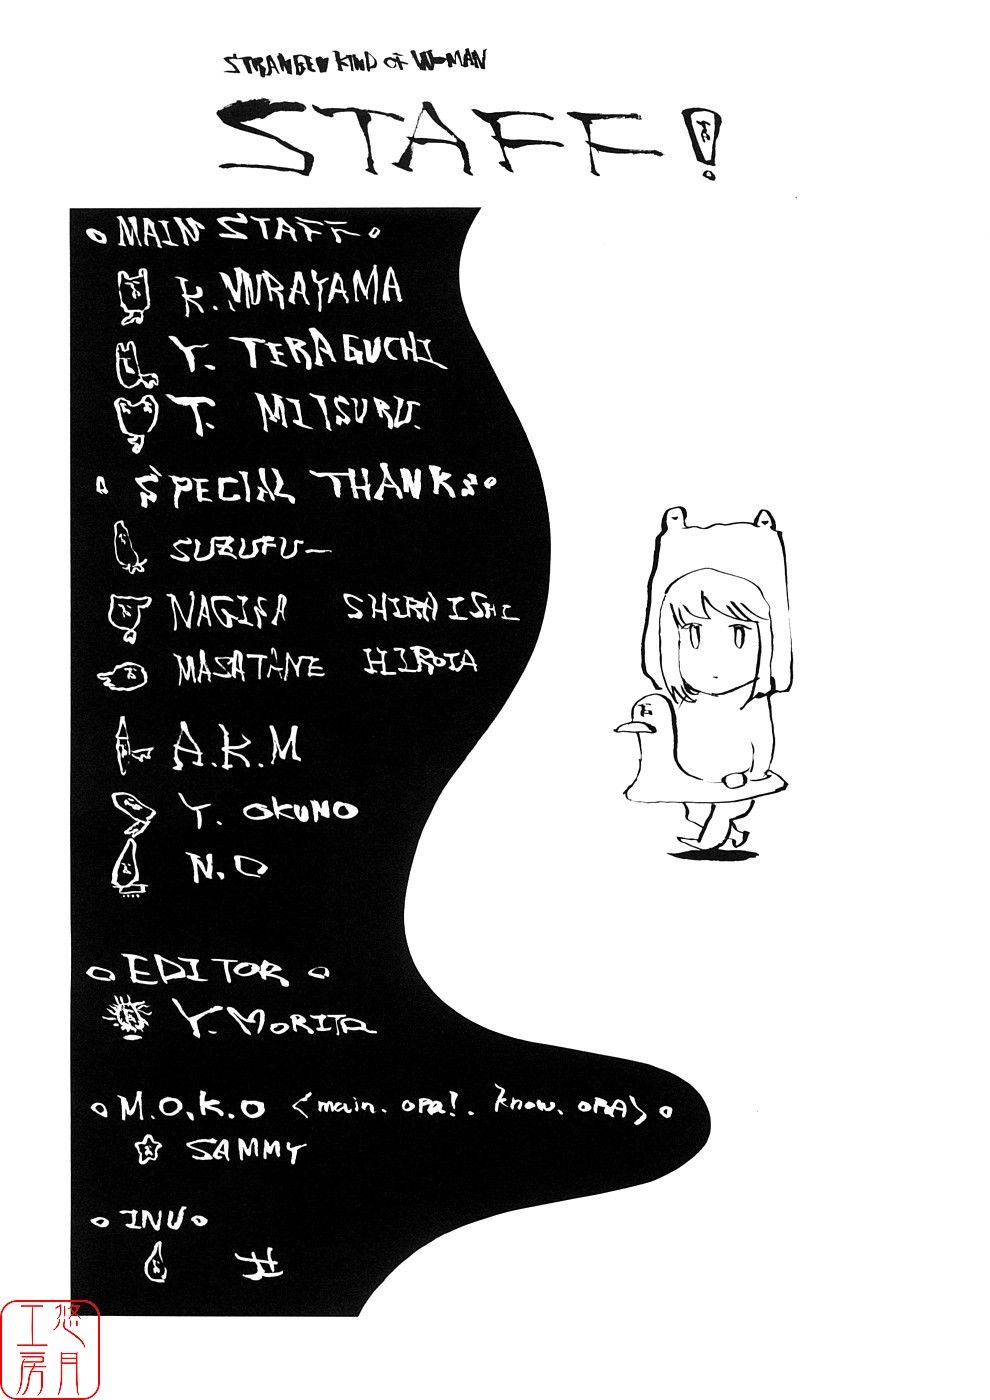 STRANGE KIND OF WOMAN
STAFF!
MAIN STAFF
K. MURAYAMA
Y. TERAGUCHI
T. MITSURU.
SPECIAL THANKS
SUZUFU—
NAGISA SHIRAISHI
MASATANE HIROTA
A.K.M
Y. OKUNO
N.D
EDITOR
Y. MORITA
M.O.K.O <main. ORA!. know. ORA>
SAMMY
INU
井
悠月工房